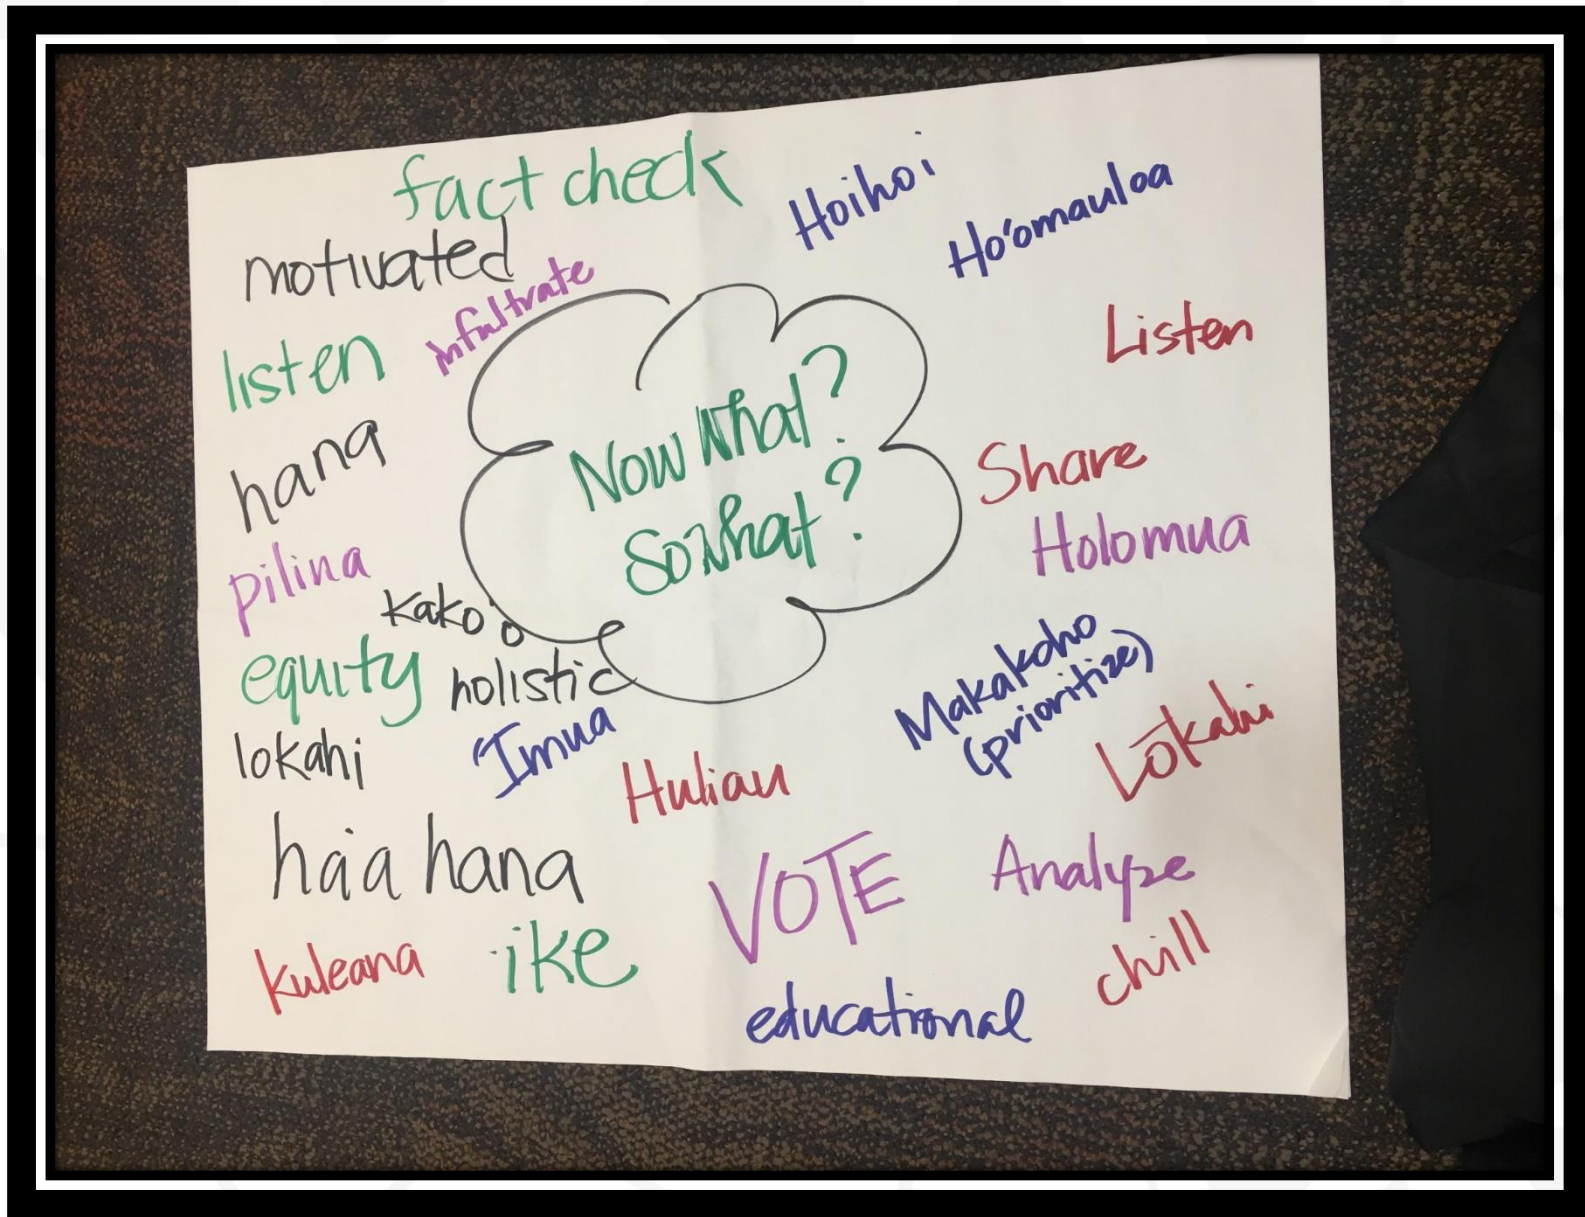 fact check
Hoihoi
Ho'omauloa
motivated
infultrate
listen
Listen
Now What?
So What?
hana
Share
Holomua
pilina
kako'o
equity
holistic
Makakoho
(prioritize)
lokahi
'Imua
Huliau
Lōkahi
ha'a hana
VOTE
Analyze
kuleana
'ike
educational
chill